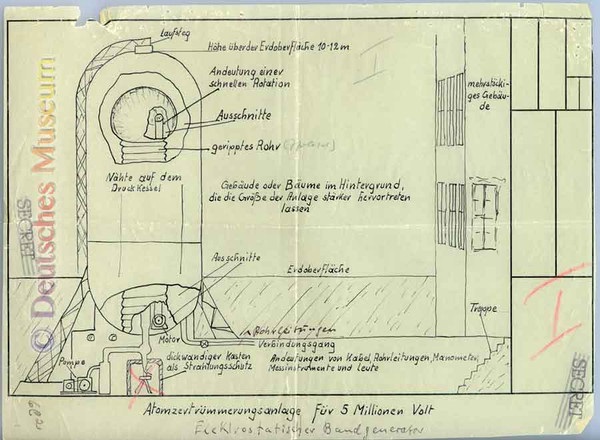 Laufsteg
Höhe über der Erdoberfläche 10-12m
Andeutung einer
schnellen Rotation
mehrstöcki-
ges Gebäu-
de
Ausschnitte
geripptes Rohr
Nähte auf dem
Druckkessel
Gebäude oder Bäume im Hintergrund,
die die Größe der Anlage stärker hervortreten
lassen
© Deutsches Museum
SECRET
Ausschnitte
Erdoberfläche
Treppe
Rohrleitungen
Motor
Verbindungsgang
Pumpe
dickwandiger Kasten
als Strahlungsschutz
Andeutungen von Kabel, Rohrleitungen, Manometer,
Messinstrumente und Leute
SECRET
Atomzertrümmerungsanlage für 5 Millionen Volt
Elektrostatischer Bandgenerator